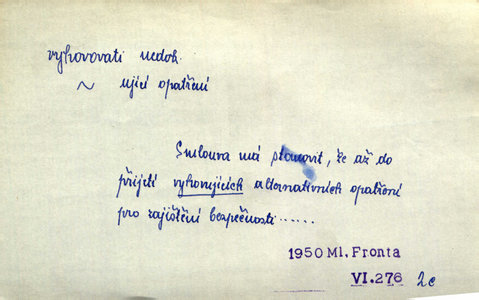 vyhovovati nedok.
~ ující opatření
Smlouva má stanovit, že až do
přijetí vyhovujících alternativních opatření
pro zajištění bezpečnosti......
1950 Ml. Fronta
VI.276 2c